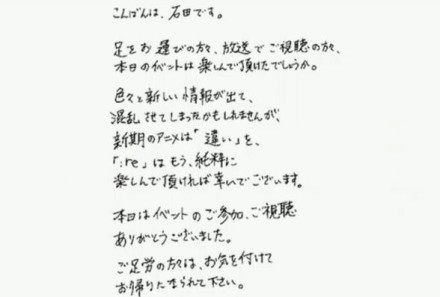 こんばんは、石田です。
足をお運びの方々、放送でご視聴の方々、
本日のイベントは楽しんで頂けたでしょうか。
色々と新しい情報が出て、
混乱させてしまったかもしれませんが、
新期のアニメは「違い」を、
「:re」はもう、純粋に
楽しんで頂ければ幸いでございます。
本日はイベントのご参加、ご視聴
ありがとうございました。
ご足労の方々は、お気を付けて
お帰りになられて下さい。